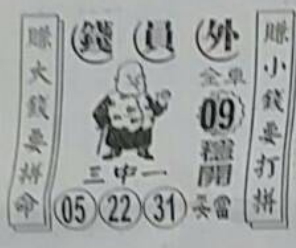 錢員外
賺大錢要拼命
賺小錢要打拼
全車
09
穩開
三中一
05 22 31
妥當